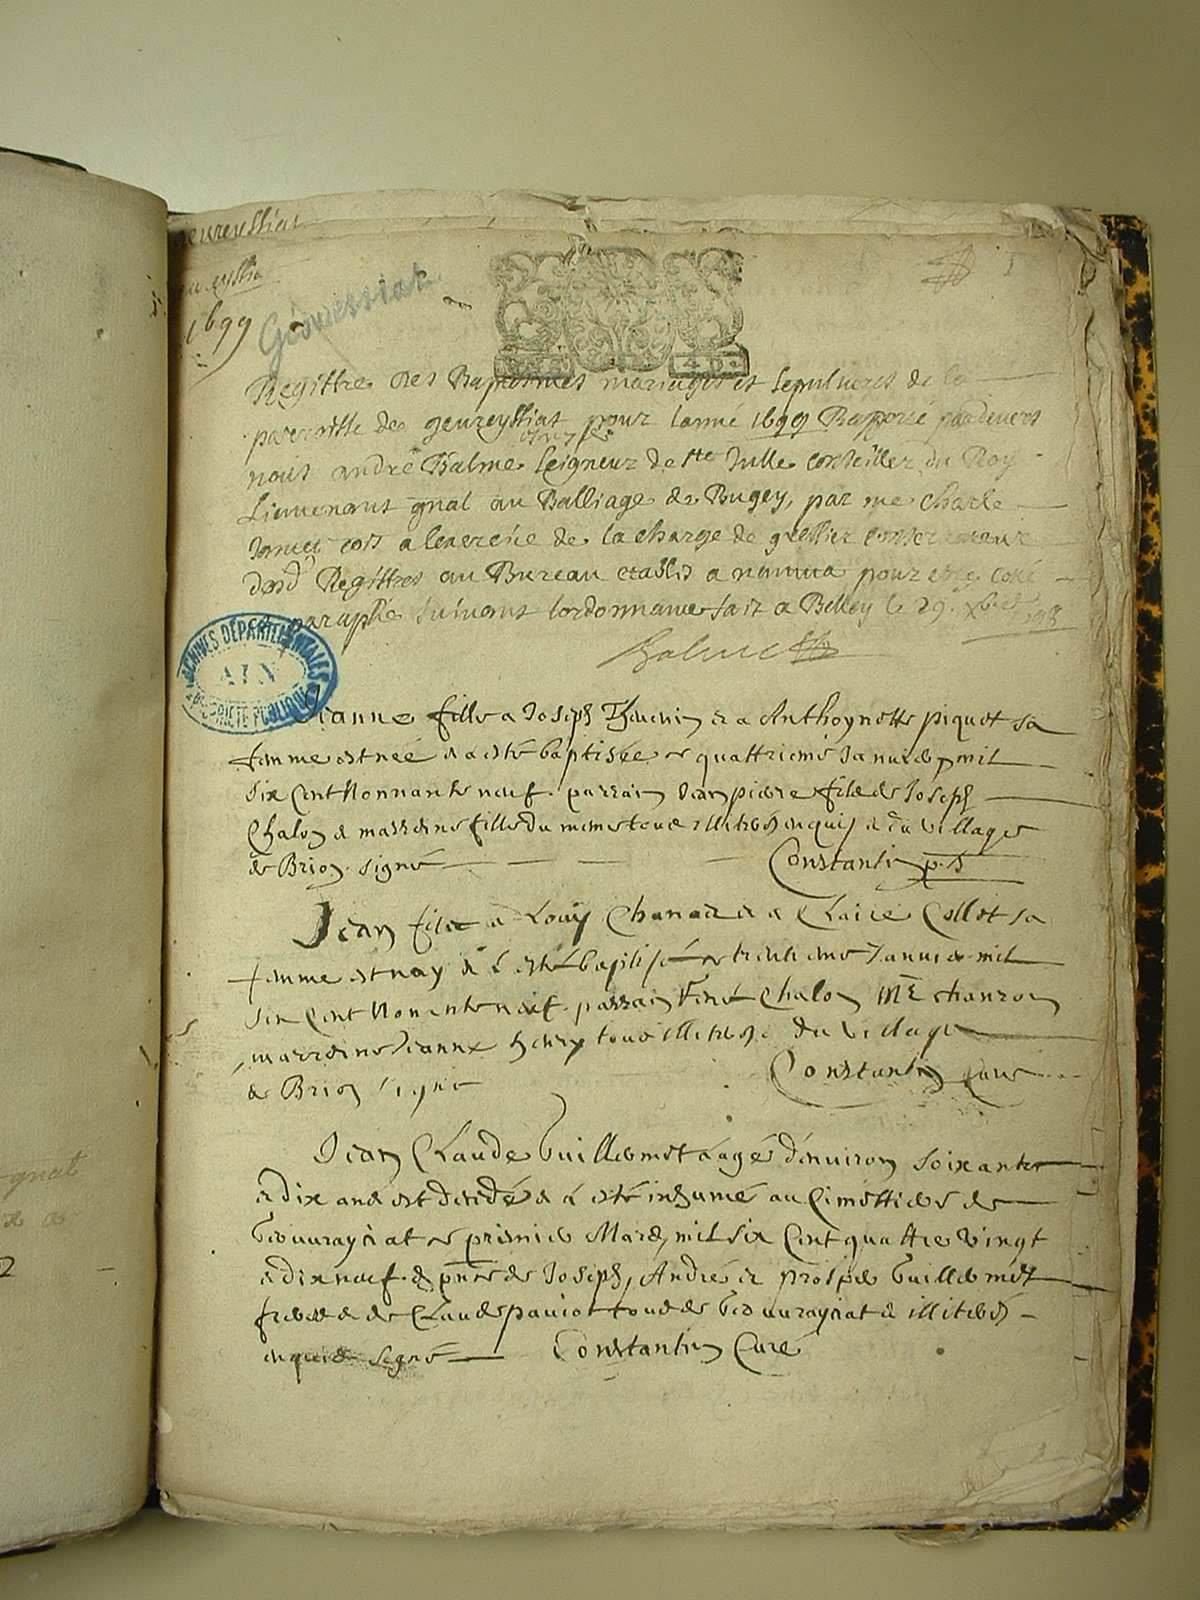 geureyssiat
1699
Géovreissiat
Registre des Baptesmes mariages et sepultures de la
parroisse de geureyssiat pour lanné 1699 Rapporté pardevers
nous andré Balme seigneur de Ste Julle conseiller du Roy
Lieutenant gnal au Balliage de Bugey, par me Charle
cois a lexercice de la charge de greffier conservateur
desd Registres au Bureau etably a nantua pour estre coté
paraphé suivant lordonnance fait a Belley le 29e Xbre 1698
Balme
ARCHIVES DÉPARTEMENTALES
AIN
PROPRIÉTÉ PUBLIQUE
Jeanne fille a Joseph Thevenin et a Anthoynette piquet sa
femme est née et a esté baptisée ce quattrieme Janvier mil
six Cent Nonnante neuf. parrain Jean pierre fils de Joseph
Chalon et marreine fille du mesme tous illiteres enquis et du village
de Brion. signé Constantin
Jean fils a Louis Chanard et a Claire Collet sa
femme est nay et a esté baptisé ce trentieme Janvier mil
six Cent Nonante neuf. parrain René Chalon Me chanron
marreine Jeanne henry tous illiteres du village
de Brion signé Constantin Curé
Jean Claude Guillermet aagé d'environ soixante
et dix ans est decedé et a esté inhumé au Cimettiere de
Geouraysiat ce premier Mars mil six Cent quattre vingt
et dix neuf. en pnce de Joseph, André et Prosper Guillermet
freres et de Claude paviot tous de Geouraysiat et illiteres
enquis signé Constantin Curé